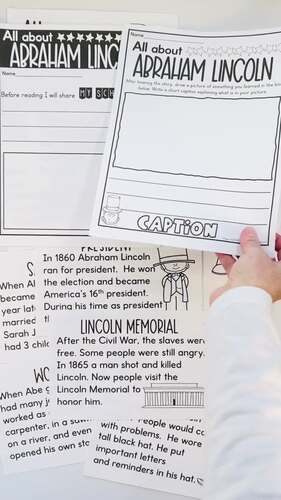 All about
ABRAHAM LINC
Name
Before reading I will share MY SCH
Name
All about
ABRAHAM LINCOLN
After hearing the story, draw a picture of something you learned in the
below. Write a short caption explaining what is in your picture.
CAPTION
PRESIDENT
In 1860 Abraham Lincoln
ran for president. He won
the election and became
America's 16th president.
During his time as president
S
When A
became
year late
married
had 3 chil
LINCOLN MEMORIAL
After the Civil War, the slaves were
free. Some people were still angry.
In 1865 a man shot and killed
Lincoln. Now people visit the
Lincoln Memorial to
honor him.
WO
When Abe
had many j
worked as
carpenter, in a saw
on a river, and even
opened his own sto
People would co
with problems. He wore
tall black hat. He put
important letters
and reminders in his hat.